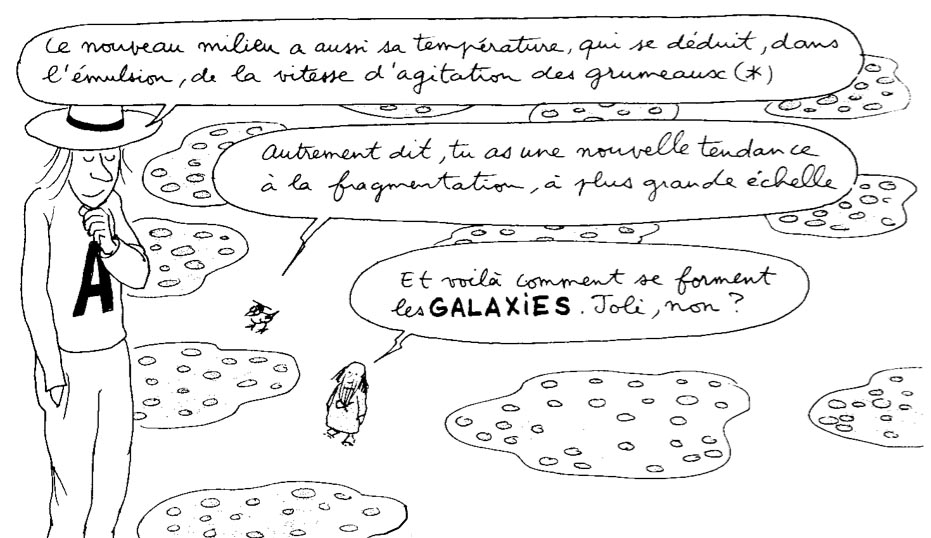 Le nouveau milieu a aussi sa température, qui se déduit, dans
l'émulsion, de la vitesse d'agitation des grumeaux (*)
Autrement dit, tu as une nouvelle tendance
à la fragmentation, à plus grande échelle
Et voilà comment se forment
les GALAXiES. Joli, non ?
A